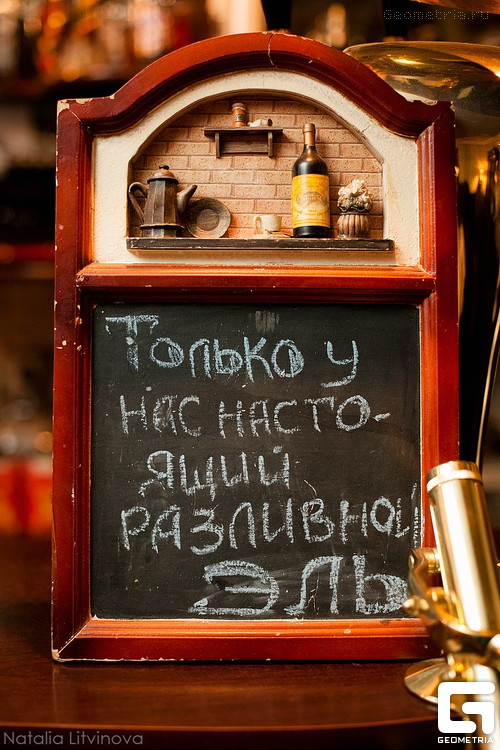 Geometria.ru
Только у
нас насто-
ящий
разливной
эль
Natalia Litvinova
GEOMETRIA